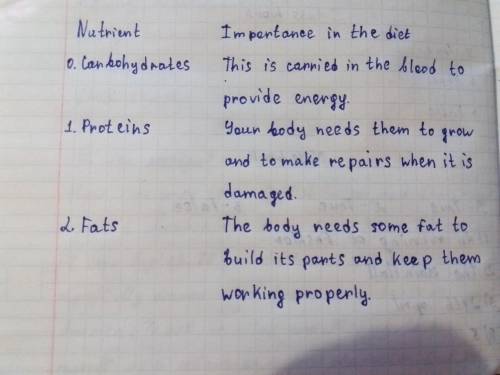 Nutrient Importance in the diet
0. Carbohydrates This is carried in the blood to
provide energy.
1. Proteins Your body needs them to grow
and to make repairs when it is
damaged.
2. Fats The body needs some fat to
build its parts and keep them
working properly.